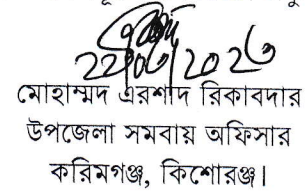 22/06/2026
মোহাম্মদ এরশাদ রিকাবদার
উপজেলা সমবায় অফিসার
করিমগঞ্জ, কিশোরঞ্জ।